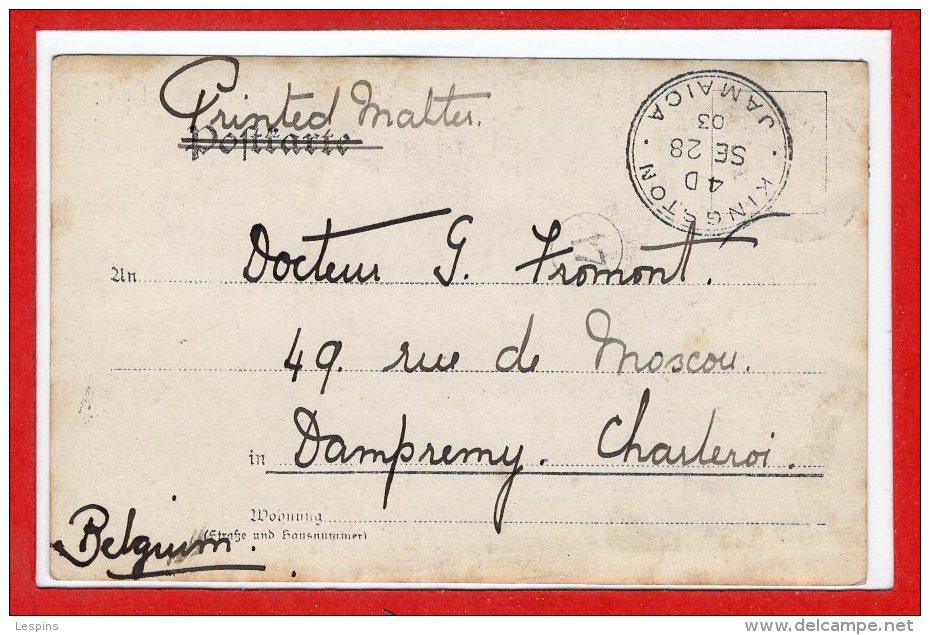 Printed Matter.
Postkarte
KINGSTON · JAMAICA ·
4 D
SE 28
03
An Docteur G. Fromont.
49. rue de Moscou.
in Dampremy. Charleroi.
Wohnung
(Straße und Hausnummer)
Belgium.
Lespins
http://www.delcampe.net